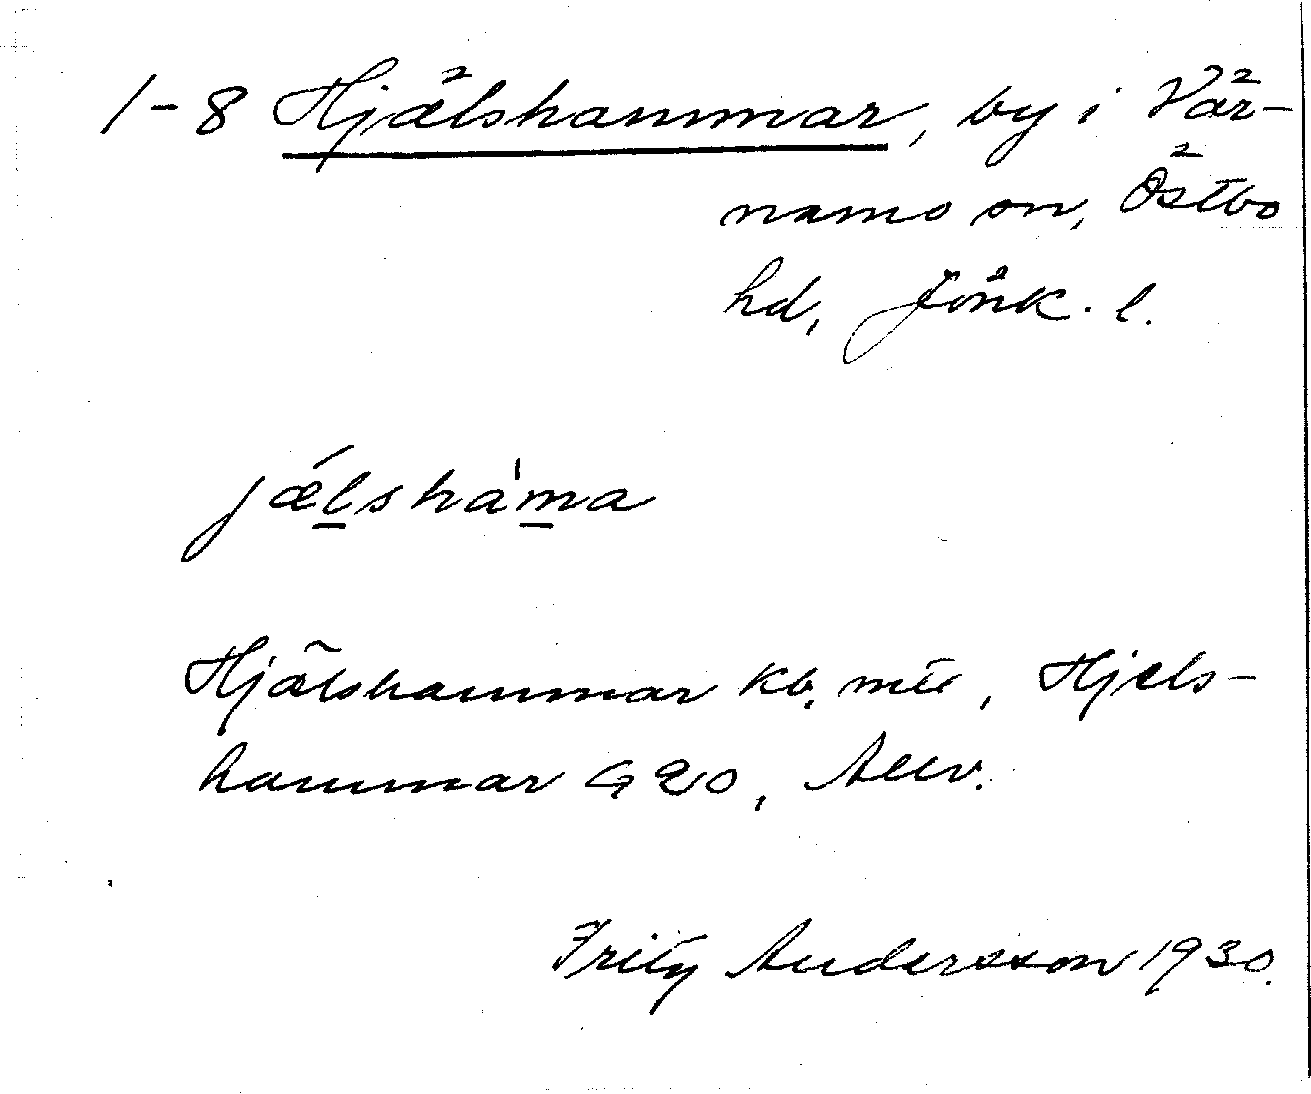 1-8 Hjälshammar, by i Vär-
namo sn, Östbo
hd, Jönk. l.
jǽlshàma
Hjälshammar kb, mtl, Hjels-
hammar G 20, Allv.
Fritz Andersson 1930.